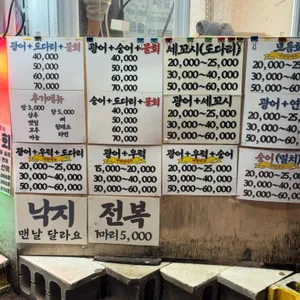 광어+도다리+물회
40,000
50,000
60,000
70,000
추가메뉴
광어+숭어+물회
40,000
50,000
60,000
70,000
숭어+도다리+물회
40,000
50,000
60,000
70,000
세꼬시(도다리)
20,000~25,000
30,000~40,000
50,000~60,000
광어+세꼬시
20,000~25,000
30,000~40,000
50,000~60,000
모듬
20,000
30,000
50,000
광어+연
20,000
30,000
50,000
광어+우럭+도다리
20,000~25,000
30,000~40,000
50,000~60,000
광어+우럭
15,000~20,000
30,000~40,000
50,000~60,000
광어+우럭+숭어
20,000~25,000
30,000~40,000
50,000~60,000
숭어(밀치)
20,000
30,000
50,000
낙지
맨날 달라요
전복
1마리 5,000
회